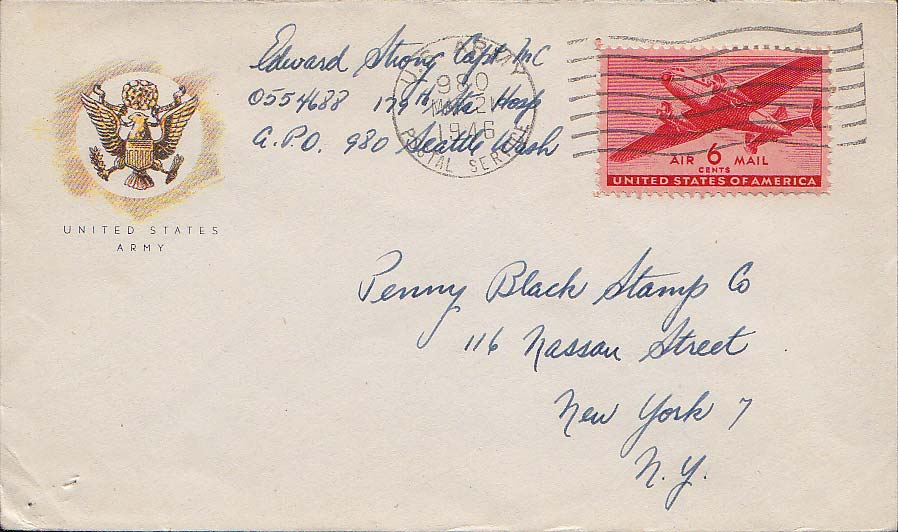 Edward Strong Capt MC
0554688 179th Sta Hosp
A.P.O. 980 Seattle Wash
U.S. ARMY
980
MAR 2
1946
POSTAL SERVICE
AIR 6 MAIL
CENTS
UNITED STATES OF AMERICA
UNITED STATES
ARMY
Penny Black Stamp Co
116 Nassau Street
New York 7
N.Y.